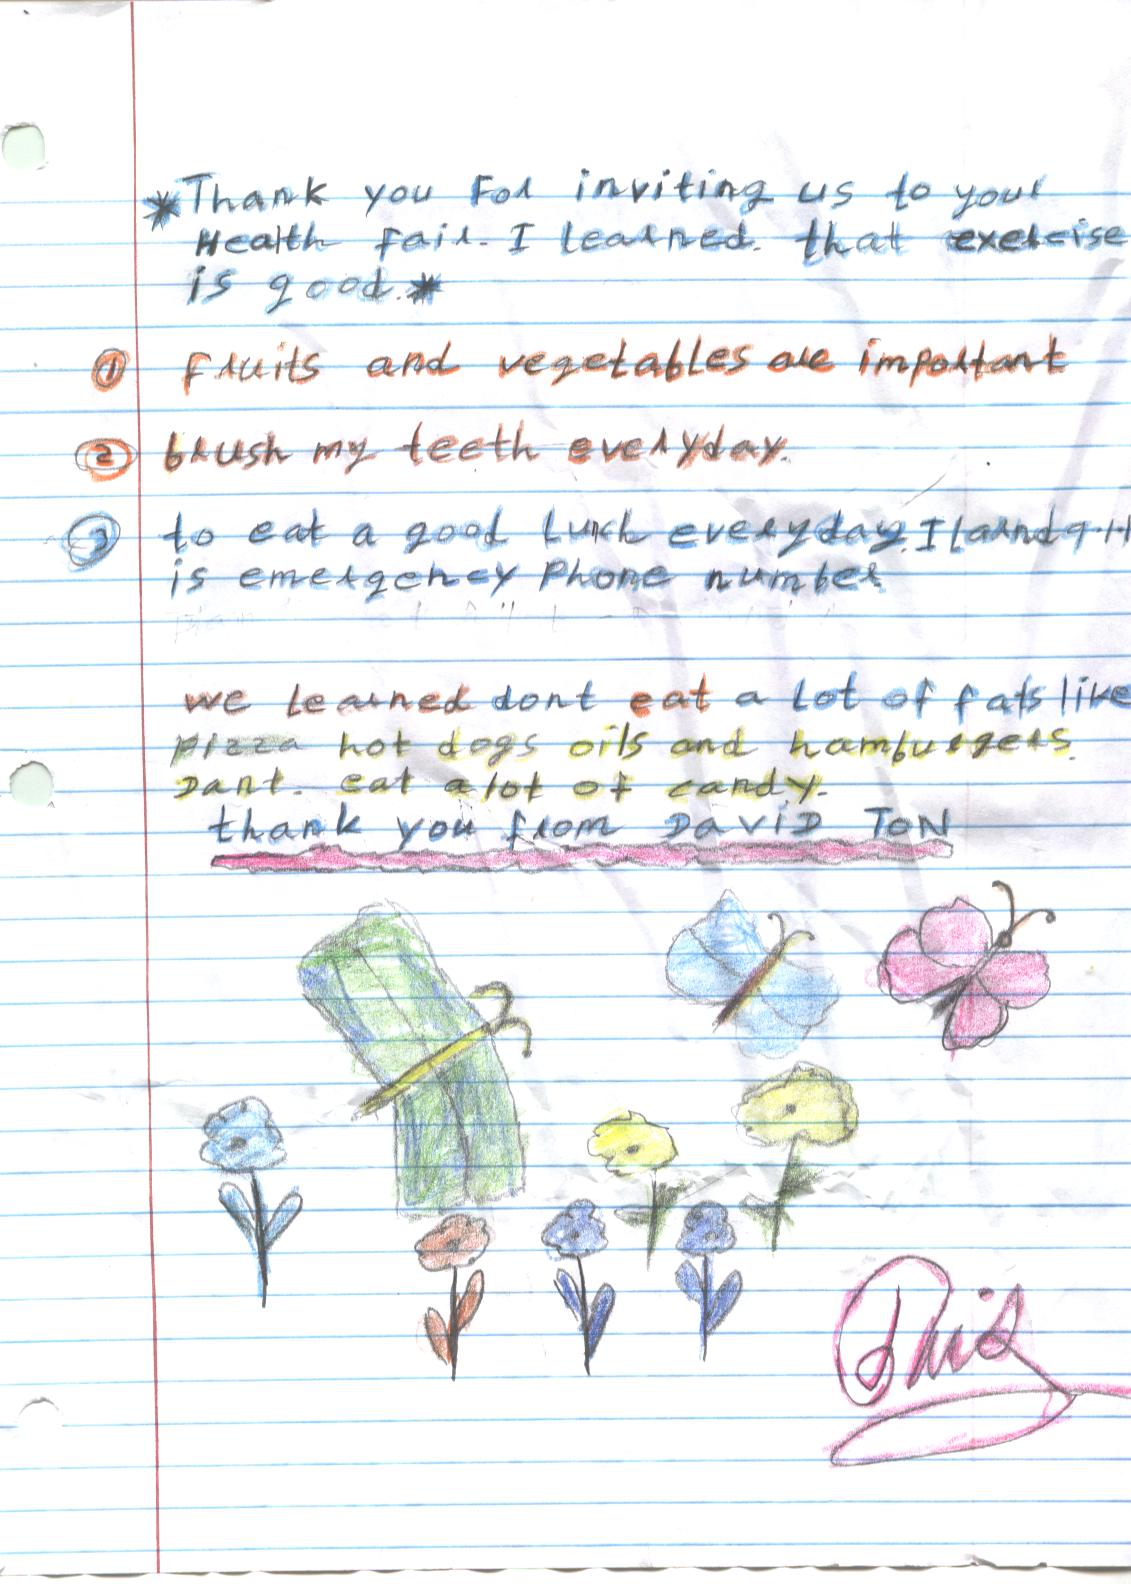 *Thank you For inviting us to your
Health fair. I learned. that exercise
is good.*
① fruits and vegetables are important
② brush my teeth everyday.
③ to eat a good lunch everyday. I larnd 9-11
is emergency Phone number
we learned dont eat a lot of fats like
pizza hot dogs oils and hamburgers.
Dant. eat a lot of candy.
thank you from DaviD ToN